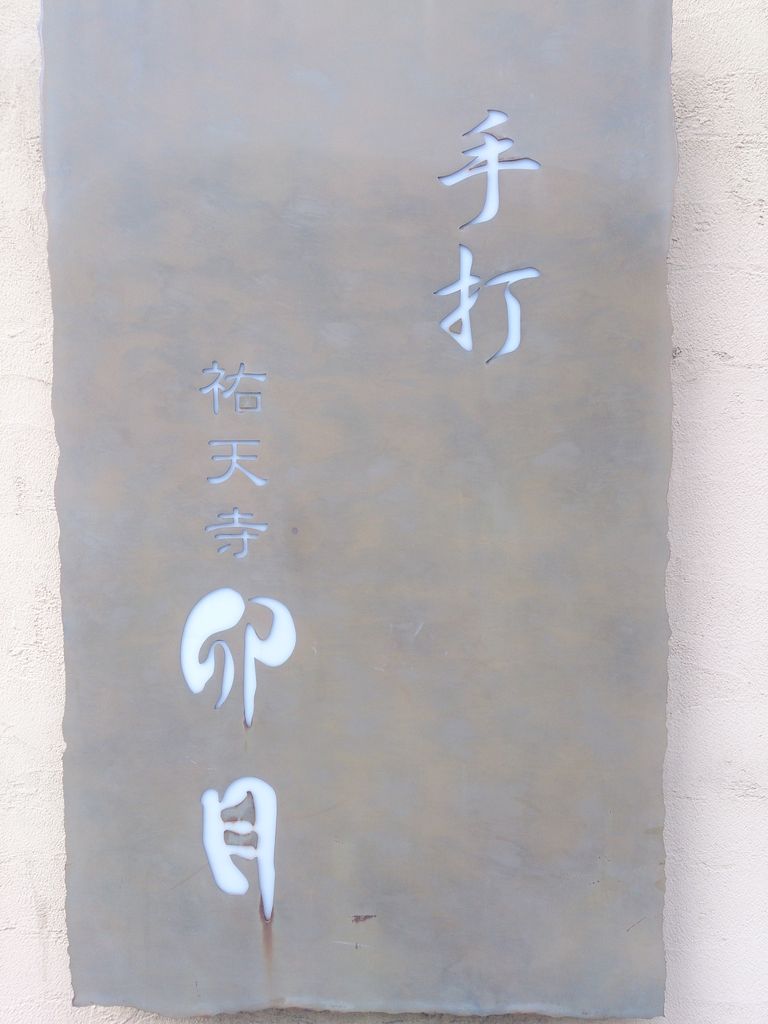 手打
祐天寺 卯月